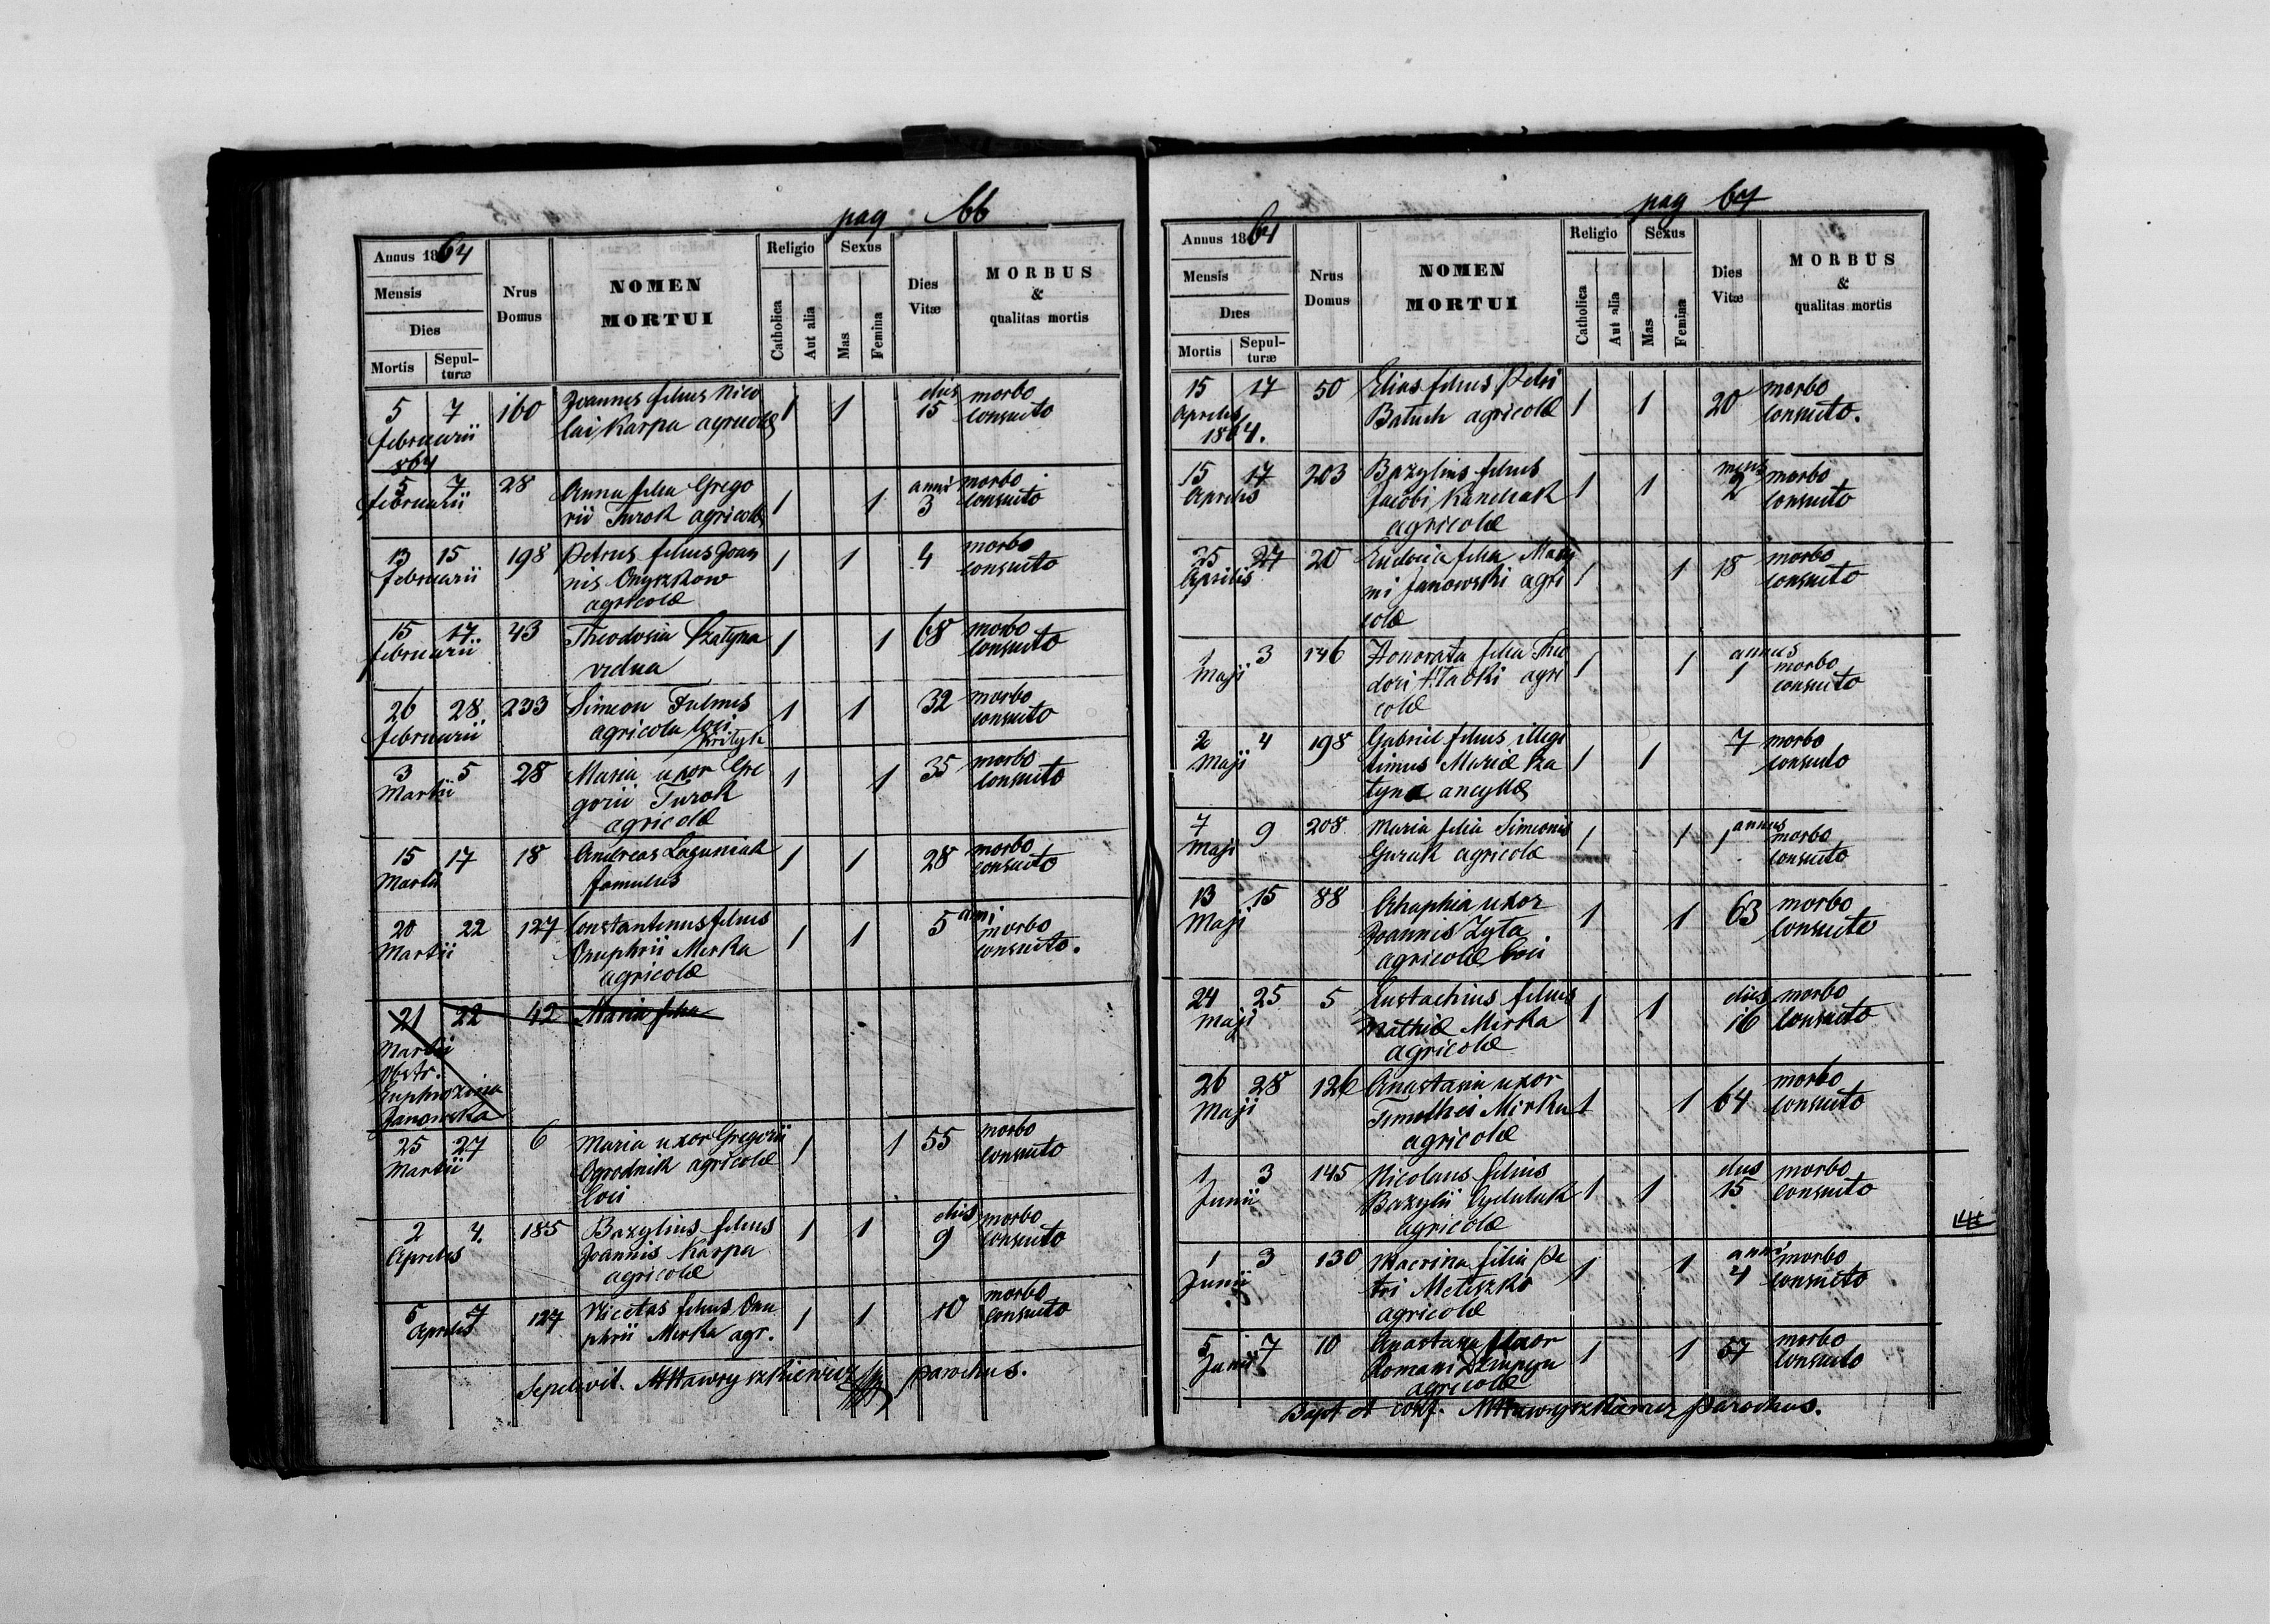 pag: 66
Annus 1864
Mensis
Dies
Mortis
Sepul-
turæ
Nrus
Domus
NOMEN
MORTUI
Religio
Catholica
Aut alia
Sexus
Mas
Femina
Dies
Vitæ
MORBUS
&
qualitas mortis
5 7 160 Joannes filius Nico 1 1 dies 15 morbo
februarii lai Karpa agricolæ consueto
864
5 7 28 Anna filia Grego 1 1 anni 3 morbo
februarii rii Turok agricolæ consueto
13 15 198 Petrus filius Joan 1 1 4 morbo
februarii nis Onyszkow consueto
agricolæ
15 17 43 Theodosia Szatyna 1 1 68 morbo
februarii vidua consueto
26 28 233 Simeon Fulmes 1 1 32 morbo
februarii agricola loci consueto
3 5 28 Maria uxor Gre 1 1 35 morbo
Martii gorii Turok consueto
agricolæ
15 17 18 Andreas Laguniak 1 1 28 morbo
Martii famulus consueto
20 22 127 Constantinus filius 1 1 5 anni morbo
Martii Onuphrii Mirka consueto.
agricolæ
21 22 42 Maria filia
Martii
Obstr.
Euphrozina
Janowska
25 27 6 Maria uxor Gregorii 1 1 55 morbo
Martii Ogrodnik agricolæ consueto
loci
2 4. 185 Bazylius filius 1 1 dies 9 morbo
Aprilis Joannis Karpa consueto
agricolæ
5 7 127 Nicetas filius Onu 1 1 10 morbo
Aprilis phrii Mirka agr. consueto
Sepelivit. MHawryszkiewicz parochus.
pag 67
Annus 1864
Mensis
Dies
Mortis
Sepul-
turæ
Nrus
Domus
NOMEN
MORTUI
Religio
Catholica
Aut alia
Sexus
Mas
Femina
Dies
Vitæ
MORBUS
&
qualitas mortis
15 17 50 Elias filius Petri 1 1 20 morbo
Aprilis Batuch agricolæ consueto.
1864.
15 17 203 Bazylius filius 1 1 mens 2 morbo
Aprilis Jacobi Kanciak consueto
agricolæ
25 27 20 Eudocia filia Maxy 1 1 18 morbo
Aprilis mi Janowski agri consueto
colæ
1 3 146 Honorata filia Theo 1 1 annus 1 morbo
Maji dori Hladki agri consueto
colæ
2 4 198 Gabriel filius illegi 1 1 7 morbo
Maji timus Mariæ Sza consueto
tyna ancyllæ
7 9 208 Maria filia Simeonis 1 1 annus 1 morbo
Maji Gurak agricolæ consueto
13 15 88 Ahaphia uxor 1 1 63 morbo
Maji Joannis Zyta consueto
agricolæ loci
24 25 5 Eustachius filius 1 1 dies 16 morbo
Maji Mathiæ Mirka consueto
agricolæ
26 28 126 Anastasia uxor 1 1 64 morbo
Maji Timothei Mirka consueto
agricolæ
1 3 145 Nicolaus filius 1 1 dies 15 morbo
Junii Bazylii Cydulak consueto
agricolæ
1 3 130 Macrina filia Pe 1 1 anni 4 morbo
Junii tri Meteszko consueto
agricolæ
5 7 10 Anastasia uxor 1 1 57 morbo
Junii Romani consueto
agricolæ
Bapt et conf. MHawryszkiewicz parochus.